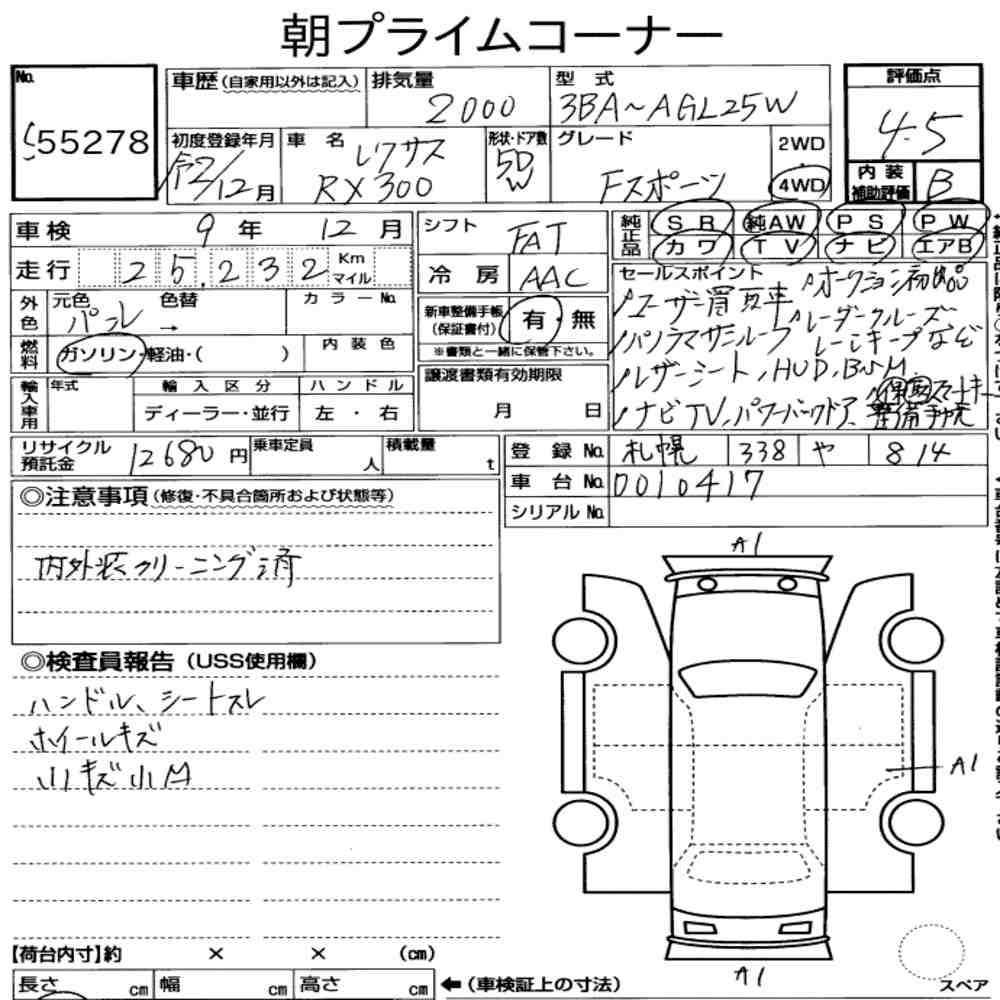 朝プライムコーナー
No. 55278
車歴(自家用以外は記入) 排気量 2000 型式 3BA~AGL25W
初度登録年月 令2/12月 車名 レクサス RX300 形状・ドア数 5D W グレード Fスポーツ 2WD 4WD
評価点 4.5
内装補助評価 B
車検 9年 12月
走行 25,232 Km マイル
外色 元色 パール 色替 → カラーNo.
燃料 ガソリン・軽油・( ) 内装色
輸入車用 年式 輸入区分 ディーラー・並行 ハンドル 左・右
シフト FAT
冷房 AAC
新車整備手帳(保証書付) 有・無
※書類と一緒に保管下さい。
譲渡書類有効期限
月 日
純正品 SR 純AW PS PW
カワ TV ナビ エアB
セールスポイント
ユーザー買取車 オークション初出品
パノラマサンルーフ レーダークルーズ
レーンキープなど
レザーシート, HUD, BSM
スマートキー
ナビTV, パワーバックドア
リサイクル預託金 12680円 乗車定員 人 積載量 t
登録No. 札幌 338 や 814
車台No. 0010417
シリアルNo.
◎注意事項(修復・不具合箇所および状態等)
内外装クリーニング済
◎検査員報告(USS使用欄)
ハンドル、シートスレ
ホイールキズ
小キズ小凹
A1
A1
A1
【荷台内寸】約 × × (cm)
長さ cm 幅 cm 高さ cm ←(車検証上の寸法)
スペア